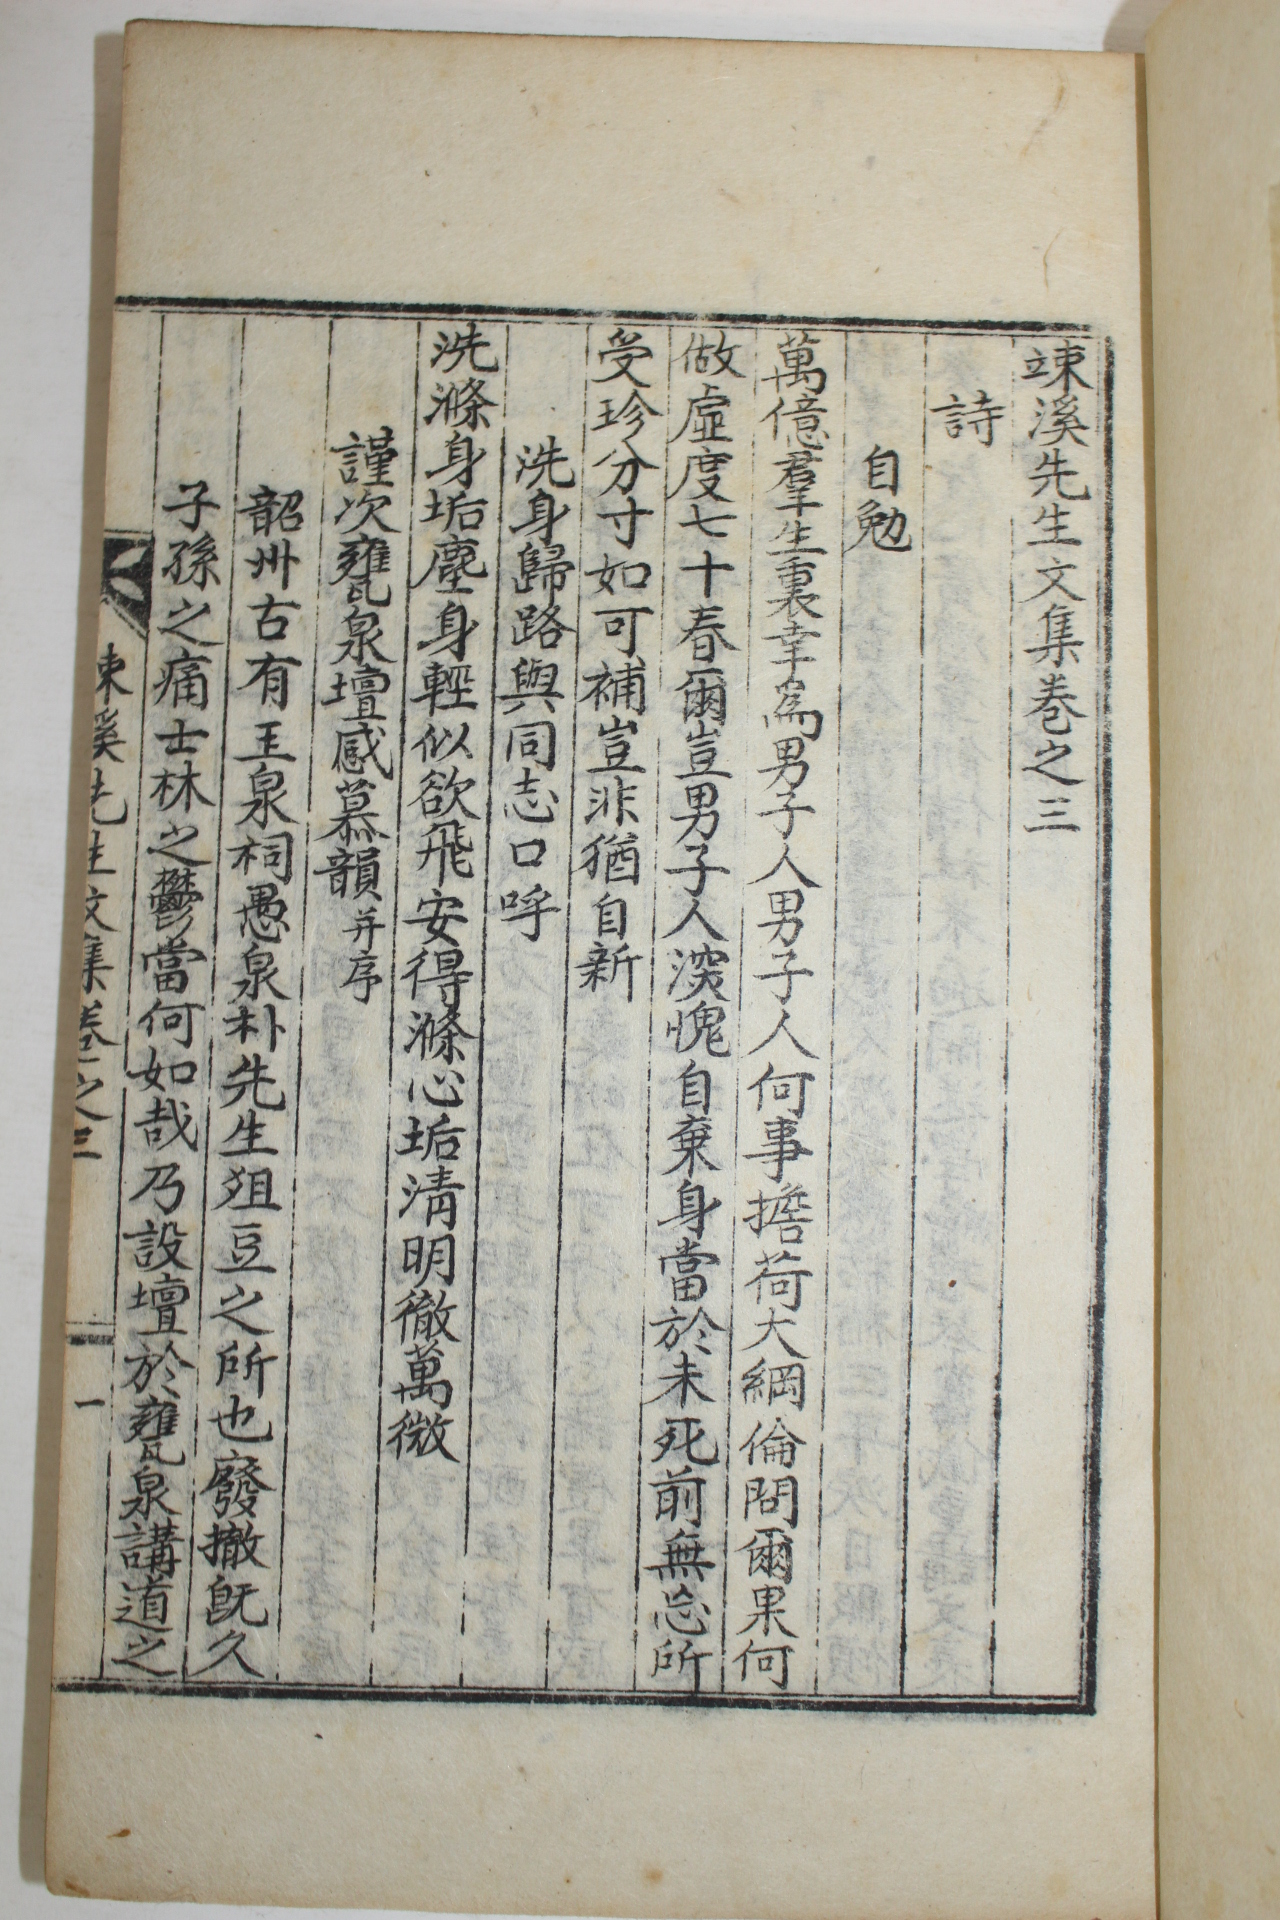 竦溪先生文集卷之三
詩
自勉
萬億羣生裏幸爲男子人男子人何事擔荷大綱倫問爾果何
做虛度七十春爾豈男子人深愧自棄身當於未死前無忘所
受珍分寸如可補豈非猶自新
洗身歸路與同志口呼
洗滌身垢塵身輕似欲飛安得滌心垢淸明徹萬微
謹次甕泉壇感慕韻并序
韶州古有王泉祠愚泉朴先生俎豆之所也廢撤旣久
子孫之痛士林之鬱當何如哉乃設壇於甕泉講道之
竦溪先生文集卷之三 一